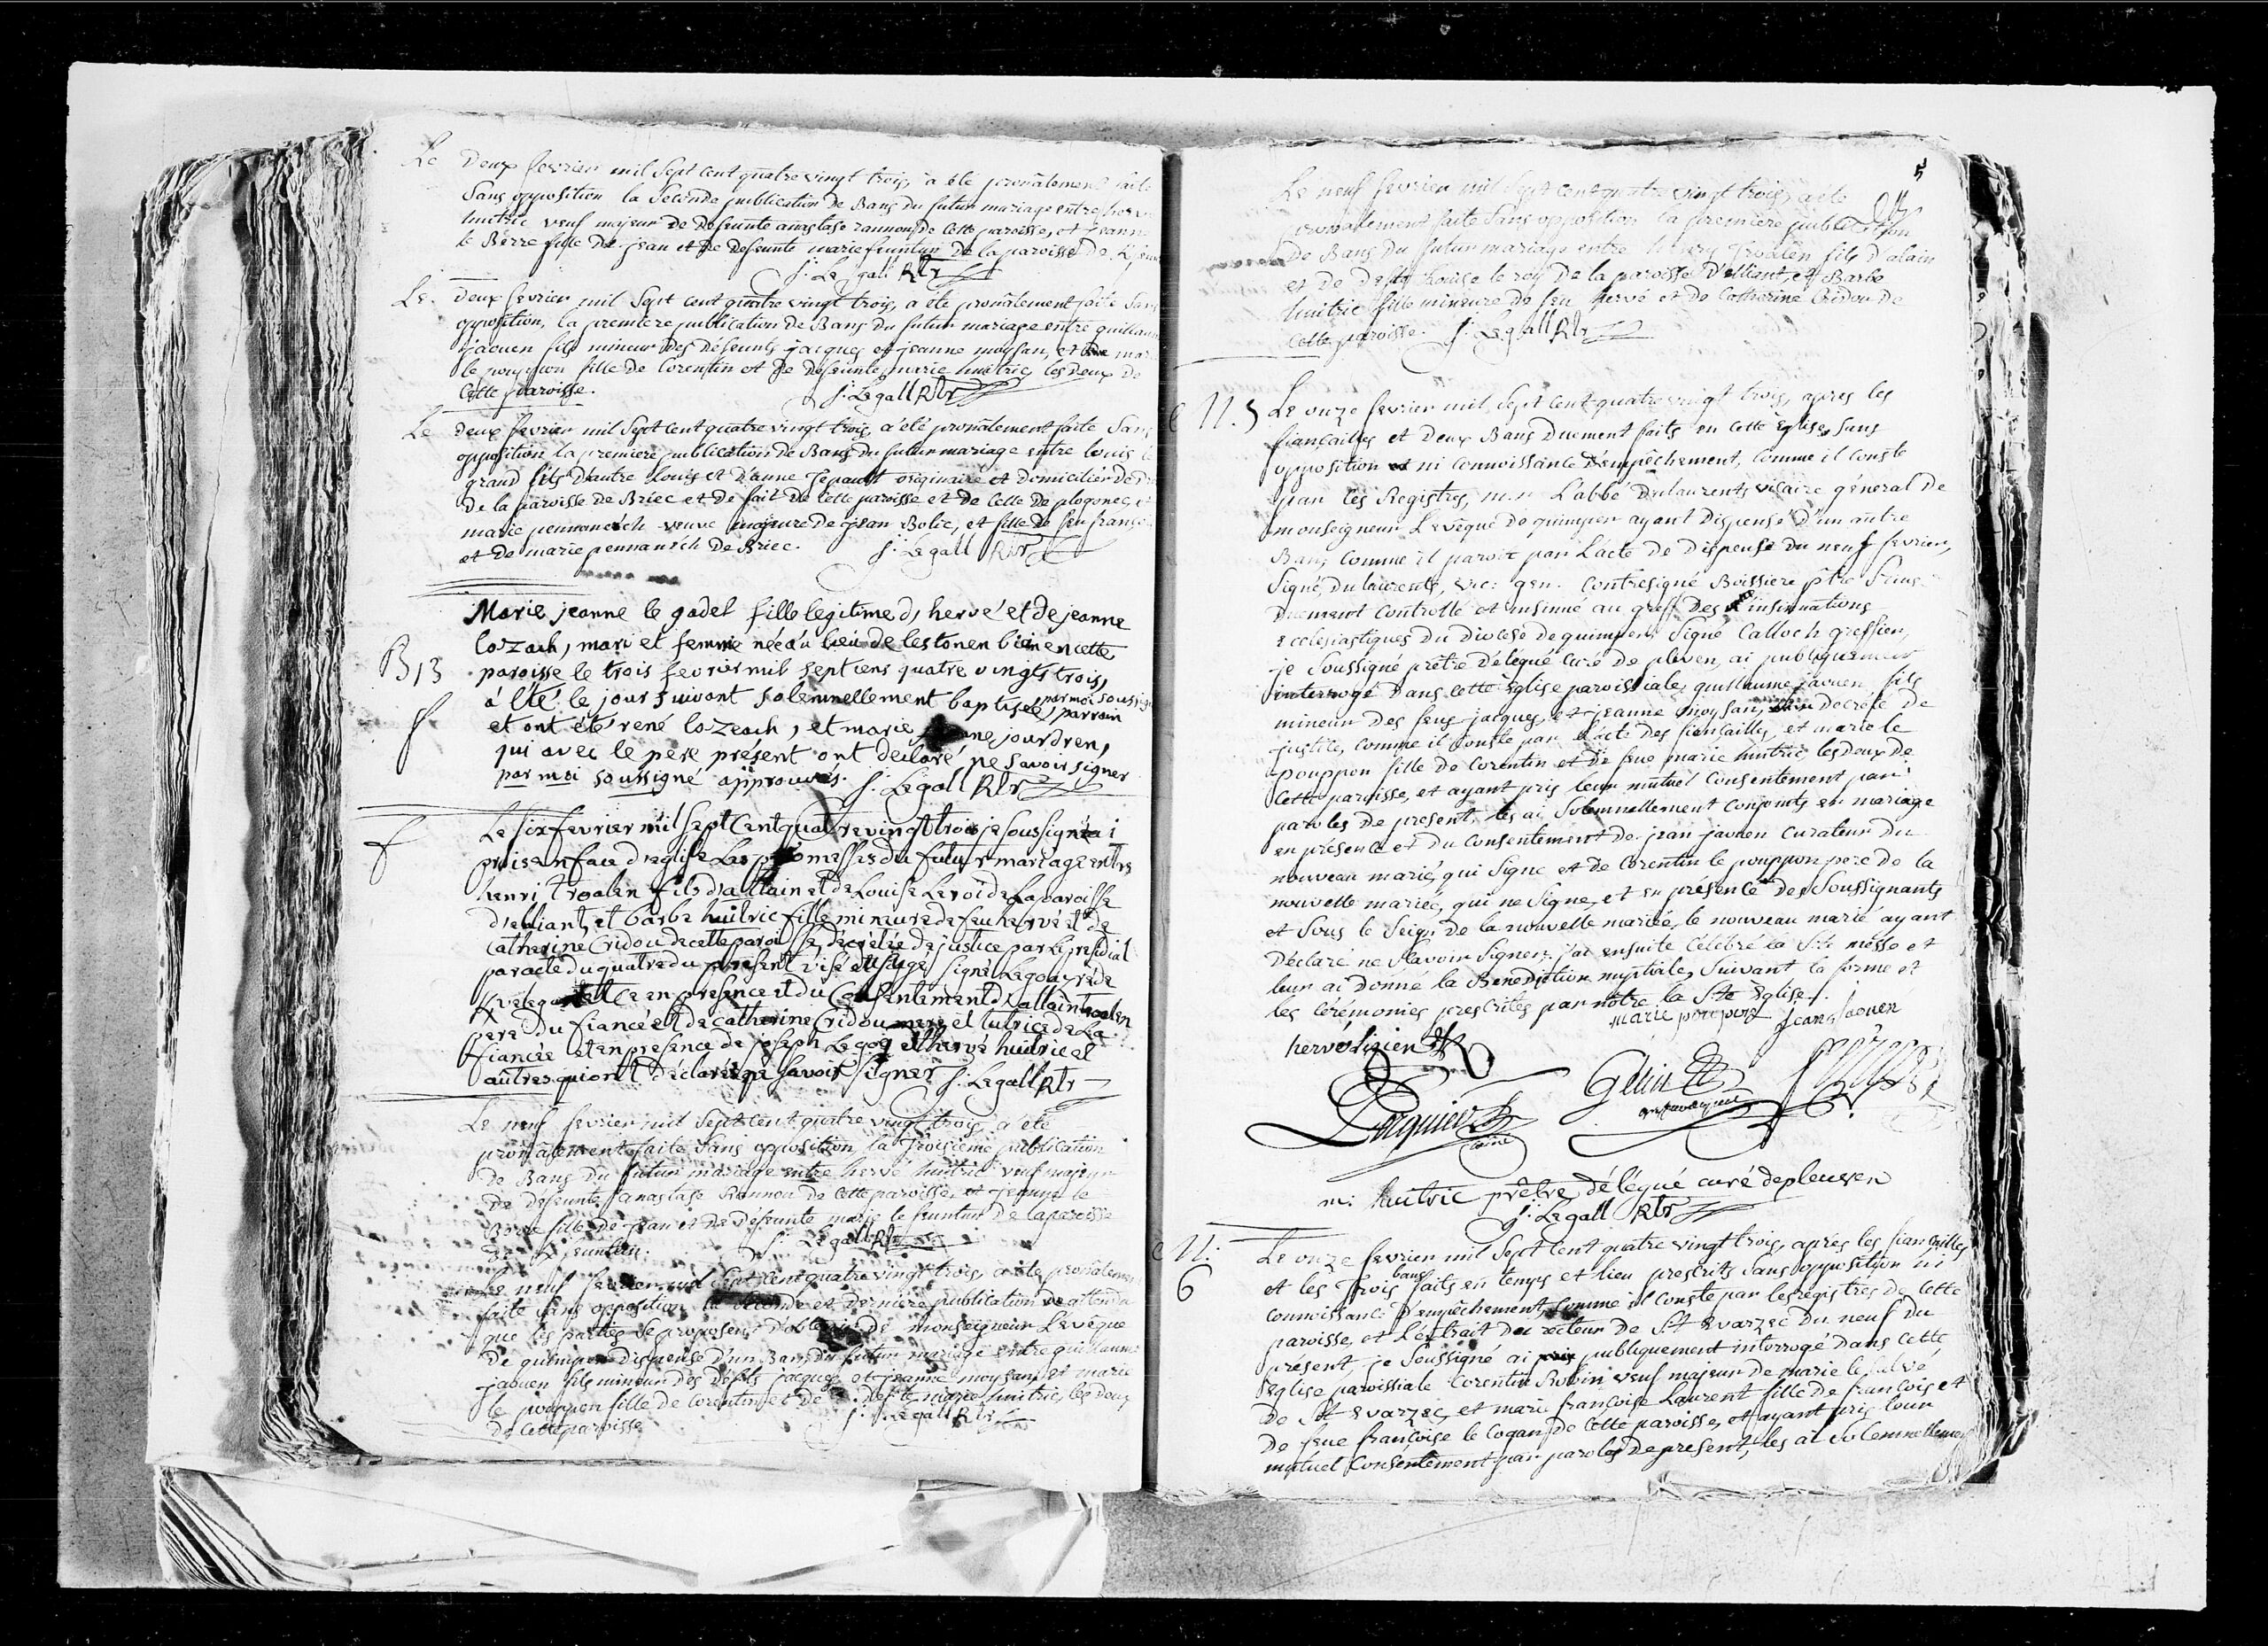 Le Deux fevrier mil Sept cent quatre vingt trois, a été pronalement faite
Sans opposition la Seconde publication de Bans du futur mariage entre herve
huitric veuf majeur de defeunte anastase rannou de cette paroisse, et jeanne
le Berre fille de jean et de defeunte marie feuntun de la paroisse de
j: Le gall Rtr
Le deux fevrier mil Sept cent quatre vingt trois, a été pronalement faite Sans
opposition, la premiere publication de Bans du futur mariage entre guillaume
jaouen fils mineur des défeunts jacques et jeanne moysan, et marie
le pouppon fille de Corentin et de defeunte marie huitric, les deux de
Cette paroisse. j: Le gall Rtr
Le deux fevrier mil Sept cent quatre vingt trois, a été pronalement faite Sans
opposition la premiere publication de Bans du futur mariage entre louis le
grand fils d'autre Louis et d'anne originaire et domicilier de
De la paroisse de Briec et de fait de cette paroisse et de celle de plogonec, et
marie pennanech veuve majeure de jean Bolic, et fille de feu françois
et de marie pennanech de Briec. j: Le gall Rtr
Marie jeanne le gadel fille legitime d, hervé et de jeanne
lozach, mari et femme née au lieu de lestonen bian en cette
B, 3 paroisse le trois fevrier mil sept cens quatre vingts trois,
à été le jour suivant solemnellement baptisée, par moi soussigné parrain
et ont été rené lozeach, et marie jeanne jourdren,
qui avec le pere présent ont declaré ne savoir signer
par moi soussigné approuvés. j: Le gall Rtr
f Le six fevrier mil sept Cent quatre vingt trois je soussigné ai
pris en face d'eglise Les promesses du futur mariage entre
henri troalen fils d'allain et de Louise Le roi de La paroisse
d'elliant, et barbe huitric fille mineure de feu hervé et de
Catherine Cridou de cette paroisse, décrétée de justice par Le presidial
par acte du quatre du present signé Le goazre de
et Ce en presence et du Consentement d'allain troalen
pere du fiancé et de Catherine Cridou mere et tutrice de La
fiancée et en presence de joseph Le gog et hervé huitric et
autres qui ont déclaré ne savoir signer j: Le gall Rtr
Le neuf fevrier mil Sept cent quatre vingt trois, a été
pronalement faite Sans opposition la Troisieme publication
de Bans du futur mariage entre hervé huitric veuf majeur
de défeunte anastase Rannou de cette paroisse, et jeanne le
Berre fille de jean et de défeunte marie le feuntun de la paroisse
j: Le gall Rtr
Le neuf fevrier mil Sept cent quatre vingt trois, a été pronalement
faite Sans opposition la Seconde et derniere publication attendu
que les parties se proposent d'obtenir de monseigneur L'evêque
de quimper dispense d'un Ban, du futur mariage entre guillaume
jaouen fils mineur des défts jacques et jeanne moysan, et marie
le pouppon fille de Corentin et de défte marie huitric, les deux
de Cette paroisse j: Le gall Rtr
5
Le neuf fevrier mil Sept cent quatre vingt trois, a été
pronalement faite Sans opposition la premiere publication
de Bans du futur mariage entre henry troalen fils d'alain
et de defte Louise le roy de la paroisse d'elliant, et Barbe
huitric fille mineure de feu hervé et de Catherine Cridou de
Cette paroisse. j: Le gall Rtr
N. 5 Le onze fevrier mil Sept cent quatre vingt trois, apres les
fiançailles et deux Bans duement faits en cette Eglise, Sans
opposition ni connoissance d'empêchement, comme il conste
par les Registres, m.r L'abbé Dulaurents vicaire général de
monseigneur L'evêque de quimper ayant dispensé d'un autre
Ban, comme il paroit par L'acte de dispense du neuf fevrier,
Signé, Dulaurents, vic: gen. Contresigné Boissiere ptre
duement Controllé et insinué au greffe des insinuations
ecclesiastiques du Diocese de quimper, Signé Calloch greffier,
je Soussigné prêtre délégué curé de pleven, ai publiquement
interrogé dans cette Eglise paroissiale, guillaume jaouen fils
mineur des feus jacques, et jeanne moysan, décrété de
justice, comme il conste par L'acte des fiançailles, et marie le
pouppon fille de Corentin et de feue marie huitric les deux de
Cette paroisse, et ayant pris leur mutuel Consentement par
paroles de present, les ai Solemnellement conjoints en mariage
en présence et du consentement de jean jaouen curateur du
nouveau marié, qui Signe et de Corentin le pouppon pere de la
nouvelle mariée, qui ne Signe, et en présence des Soussignants
et Sous le Seign de la nouvelle mariée, le nouveau marié ayant
declaré ne Scavoir Signer, j'ai ensuite célébré la Ste messe et
leur ai donné la Benediction nuptiale, Suivant la forme et
les cérémonies prescrites par notre la Ste Eglise.
marie poupon jean jaouen
herve lizien
m: huitric prêtre délégué curé de pleuven
j: Le gall Rtr
N: 6 Le onze fevrier mil Sept cent quatre vingt trois, après les fiançailles
et les Trois bans faits en temps et lieu prescrits Sans opposition ni
connoissance d'empêchement, comme il conste par les registres de cette
paroisse, et L'extrait du recteur de St Evarzec du neuf du
présent, je Soussigné ai publiquement interrogé dans cette
Eglise paroissiale Corentin Robin veuf majeur de marie le
de St Evarzec, et marie françoise Laurent fille de françois et
de feue françoise le Cogan de cette paroisse, et ayant pris leur
mutuel Consentement par paroles de present, les ai Solemnellement